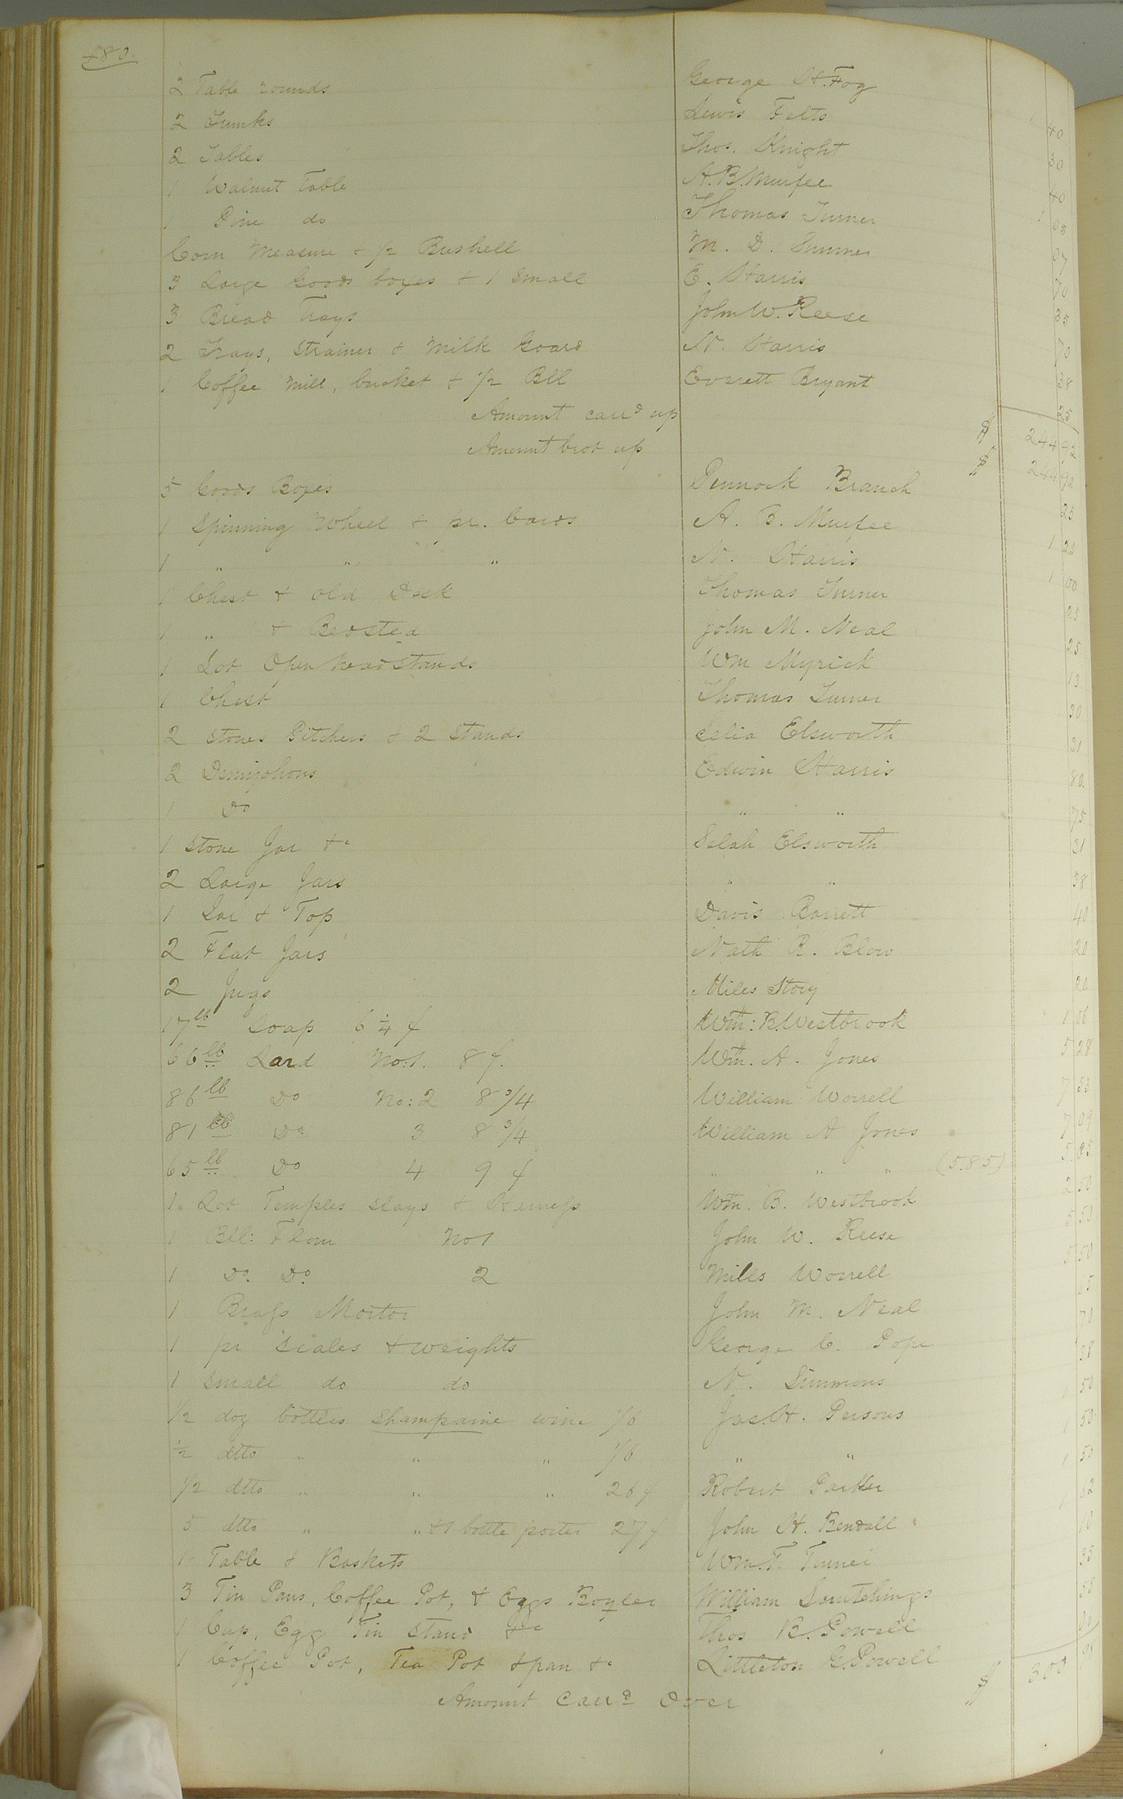 480.
2 Table rounds George H. Fog 40
2 Trunks Lewis Felts 30
2 Tables Thos. Knight 40
1 Walnut Table A. B. Murfee
1 Pine do Thomas Turner
Corn Measure & 1/2 Bushell M. D. 70
3 Large Goods boxes & 1 Small E. Harris
3 Bread Trays John W. Reese 70
2 Trays, Strainer & Milk Goard N. Harris 28
1 Coffee Mill, bucket & 1/2 Bll Everett Bryant 25
Amount carrd up $ 244 92
Amount brot up $ 244 92
5 Goods Boxes Pennock Branch 25
1 Spinning Wheel & pr. Cards A. B. Murfee 1
1 " " " N. Harris 1 00
1 Chest & old Desk Thomas Turner 25
1 " & Bedsted John M. Neal 25
1 Lot Open head stands Wm Myrick 13
1 Chest Thomas Turner 30
2 Stones Pitchers & 2 Stands Celia Elsworth 31
2 Demijohns Edwin Harris 80
1 Do " " 75
1 Stone Jar &c Selah Elsworth 31
2 Large Jars " " 38
1 Jar & Top Davis Barrett 40
2 Flat Jars Nath R. Blow 20
2 Jugs Miles Story 20
17 lb Soap 6 1/4 ¢ Wm: B Westbrook 1 06
66 lb Lard No:1. 8 ¢. Wm. A. Jones 5 28
86 lb Do No: 2 8 3/4 William Worrell 7 53
81 lb Do 3 8 3/4 William A Jones 7 09
65 lb Do 4 9 ¢ " " " (5.85) 5 85
1. Lot Temples Slays & Harness Wm. B. Westbrook 2 50
1 Bll: Flour No 1 John W. Reese 5 50
1 Do. Do. 2 Miles Worrell 5 50
1 Brass Mortar John M. Neal
1 pr Scales & weights George C. Pope
1 Small do do N. Simmons
1/2 doz bottles Shampaine wine 1/6 Jas. H. Persons 1 50
1/2 dtto " " " 1/6 " " 1 50
1/2 dtto " " " 26 ¢ Robert Parker 1
5 dtto " " & 1 bottle porter 27 ¢ John H. Bendall
1 Table & Baskets Wm. T. 35
3 Tin Pans, Coffee Pot, & Eggs Boyler William Scrutchings
1 Cup, Egg Tin Stand &c Thos B. Powell
1 Coffee Pot, Tea Pot & pan &c Littleton Powell
Amount Carrd Over $ 300